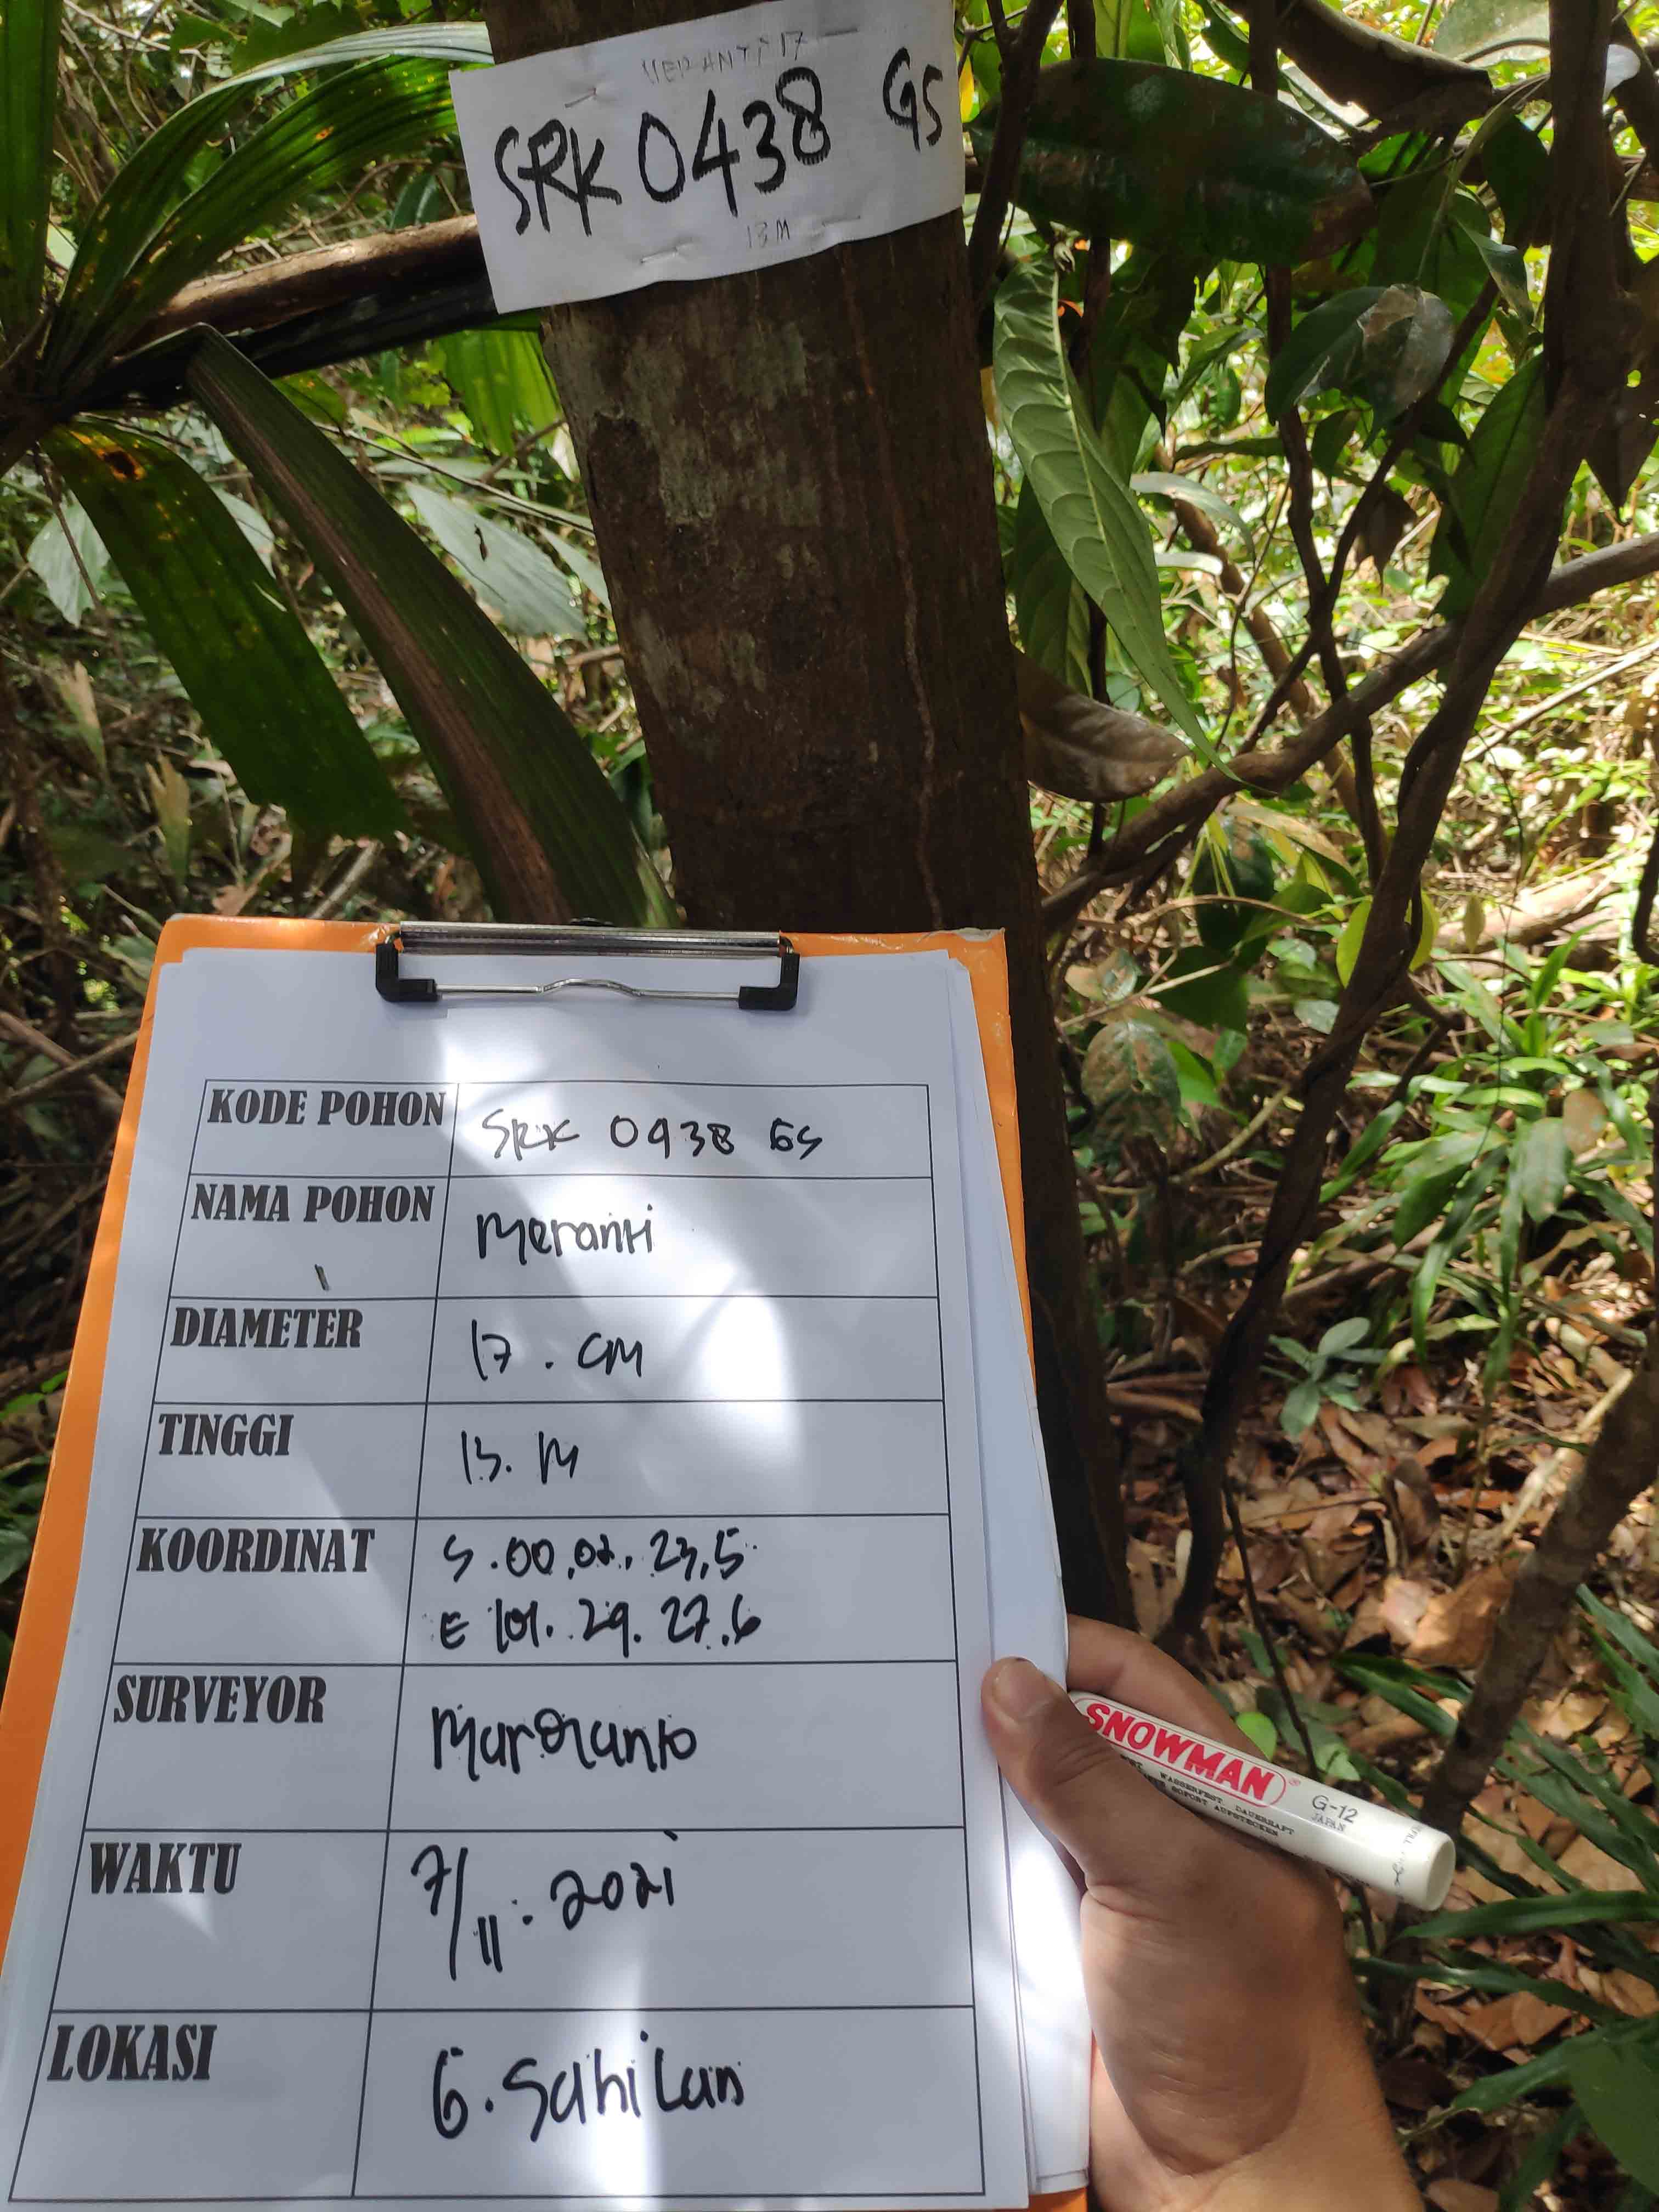 MERANTI 17
SRK 0438 GS
13 M
KODE POHON SRK 0438 GS
NAMA POHON Meranti
DIAMETER 17 . CM
TINGGI 13. M
KOORDINAT S . 00 . 02 . 23,5
E 101. 29. 27.6
SURVEYOR
WAKTU 7/11 . 2021
LOKASI G. Sahilan
SNOWMAN ®
G-12
JAPAN